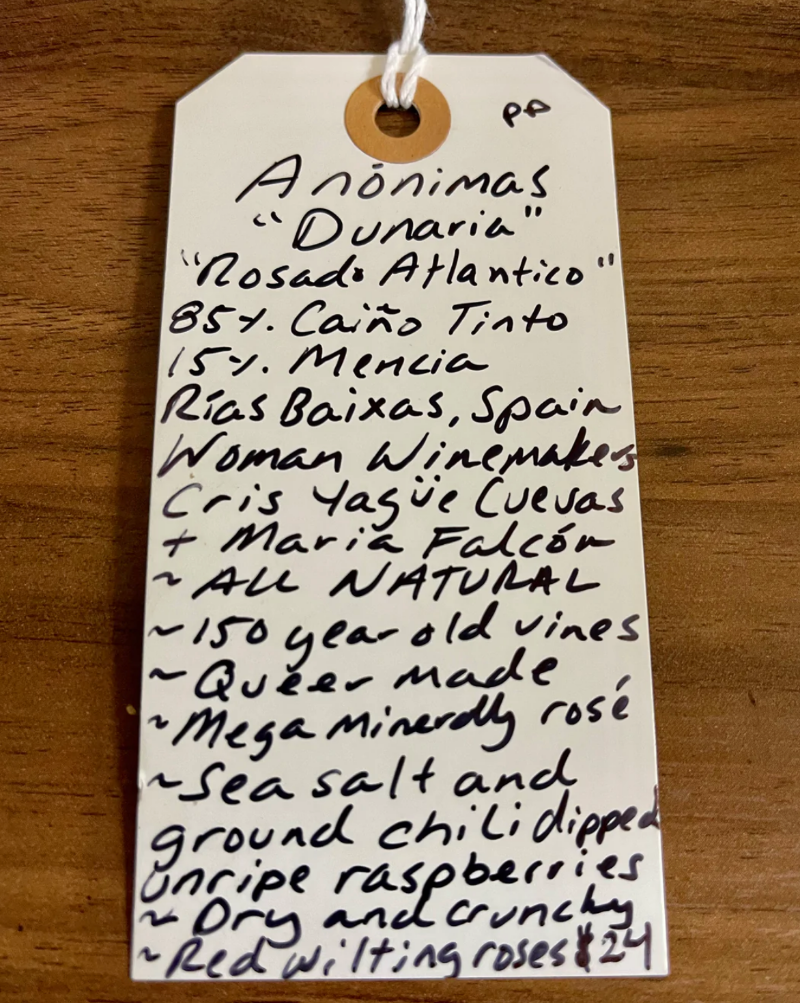 PP
Anónimas
"Dunaria"
"Rosado Atlantico"
85%. Caiño Tinto
15%. Mencia
Rías Baixas, Spain
Woman Winemakers
Cris Yagüe Cuevas
+ Maria Falcón
~ ALL NATURAL
~150 year old vines
~ Queer made
~Mega minerally rosé
~Sea salt and
ground chili dipped
unripe raspberries
~ Dry and crunchy
~Red wilting roses $24